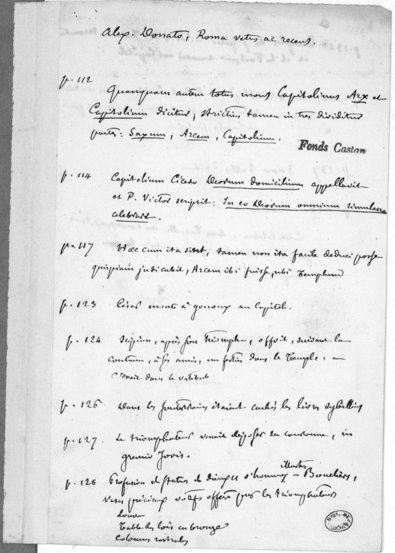 Alex. Donato, Roma vetus ac recens.
p. 112
Quanquam autem totus mons Capitolinus Arx et
Capitolium dicitur; strictim tamen in tres dividitur
partes: Saxum, Arcem, Capitolium.
Fonds Castan
p. 114
Capitolium Cicero Deorum domicilium appellavit
et P. Victor scripsit: In eo Deorum omnium simulacra
celebrant.
p. 117
Haec cum ita sint, tamen non ita facile deduci posse
quispiam judicabit, Arcem ibi fuisse, ubi Templum
p. 123
César monte à genoux au Capitole.
p. 124
Scipion, après son triomphe, offrit, suivant la
coutume, à ses amis, un festin dans le Temple: —
C'était dans le vestibule
p. 126
Dans les souterrains étaient cachés les livres sybillins
p. 127.
Le triomphateur venait déposer sa couronne, in
gremio Jovis.
p. 128
Profusion de statues de dieux et d'hommes illustres — Boucliers,
vases précieux votifs offerts par les triomphateurs
Table des lois en bronze
Colonnes rostrales